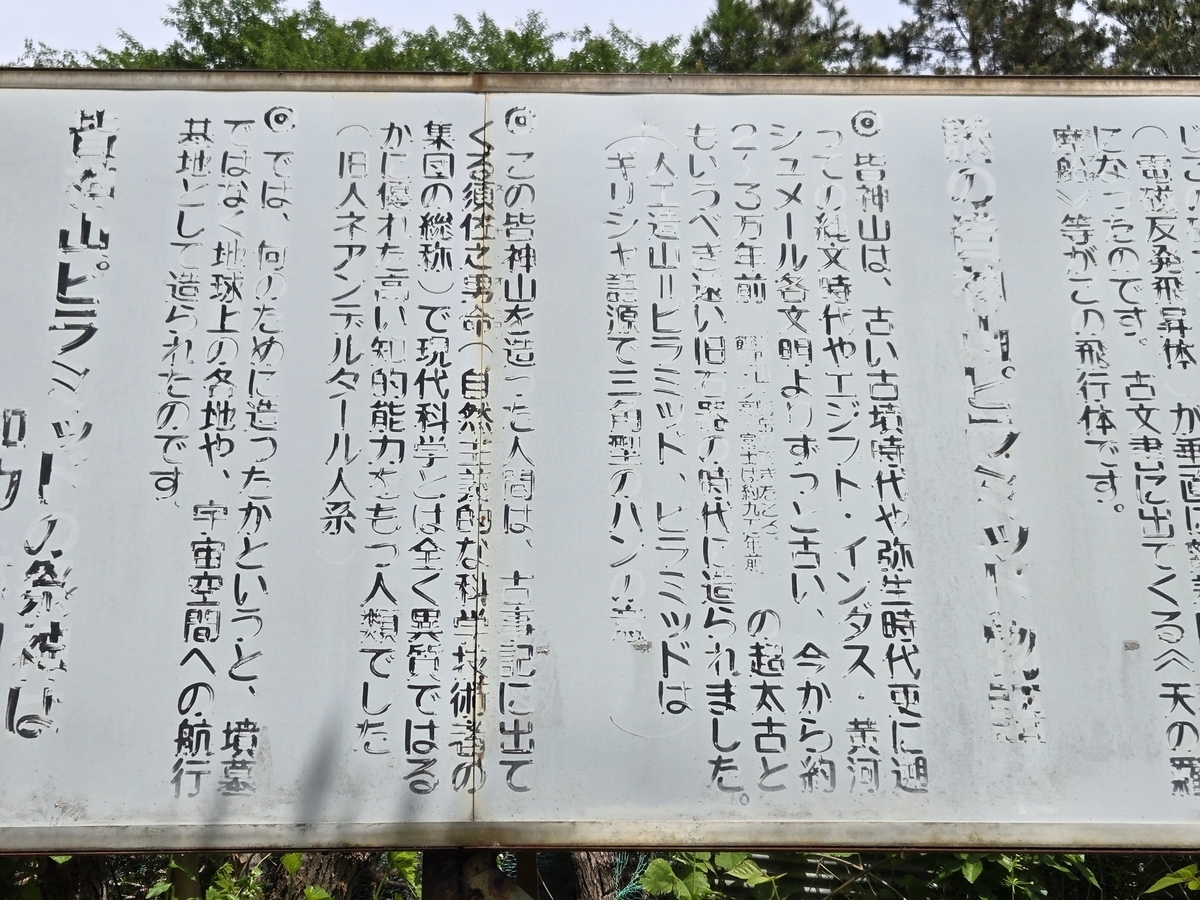 （電磁反発飛昇体）が垂直に
になったのです。古文書に出てくる〈天の羅
摩船〉等がこの飛行体です。
謎の皆神山ピラミット物語
◎皆神山は、古い古墳時代や弥生時代更に遡
っての縄文時代やエジプト・インダス・黄河
シュメール各文明よりずっと古い、今から約
2〜3万年前 の超太古と
富士は約九千年前
もいうべき遠い旧石器の時代に造られました。
（人工造山＝ピラミット、ピラミッドは
ギリシャ語源で三角型のパンの意）
◎この皆神山を造った人間は、古事記に出て
くる須佐之男命（自然主義的な科学技術者の
集団の総称）で現代科学とは全く異質ではる
かに優れた高い知的能力をもつ人類でした
（旧人ネアンデルタール人系
◎では、何のために造ったかというと、墳墓
ではなく地球上の各地や、宇宙空間への航行
基地として造られたのです。
皆神山ピラミットの祭神は